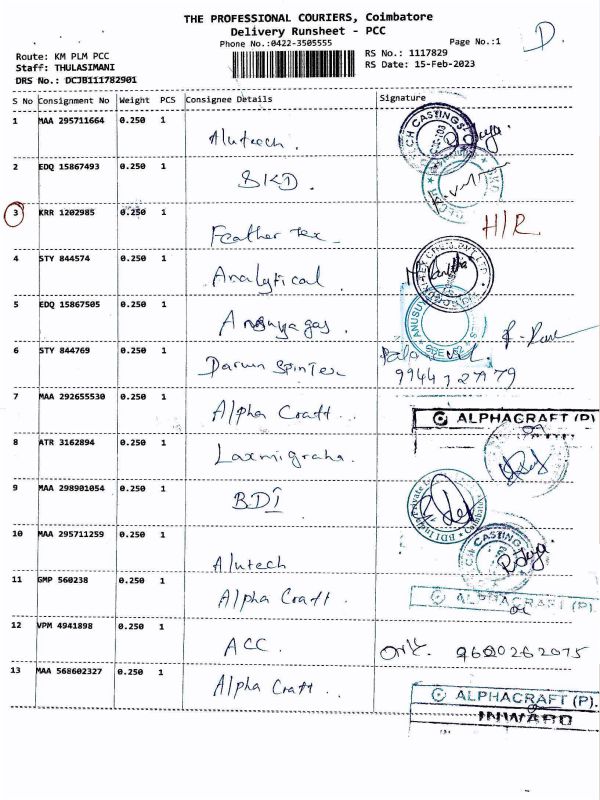 THE PROFESSIONAL COURIERS, Coimbatore
Delivery Runsheet - PCC
Phone No.:0422-3505555
Page No.:1
D.
Route: KM PLM PCC
RS No.: 1117829
Staff: THULASIMANI
RS Date: 15-Feb-2023
DRS No.: DCJB111782901
S No Consignment No Weight PCS Consignee Details Signature
1 MAA 295711664 0.250 1 Alutech. CH CASTINGS
2 EDQ 15867493 0.250 1 BKD.
3 KRR 1202985 0.250 1 Feather Tex H/R
4 STY 844574 0.250 1 Analytical.
5 EDQ 15867505 0.250 1 Anusuya gas.
6 STY 844769 0.250 1 Darwn Spintex
7 MAA 292655530 0.250 1 Alpha Craft.. ALPHACRAFT (P)
8 ATR 3162894 0.250 1 Laxmigraha.
9 MAA 298901054 0.250 1 BDI
10 MAA 295711259 0.250 1 Alutech CASTINGS
11 GMP 560238 0.250 1 Alpha Craft. ALPHACRAFT (P).
12 VPM 4941898 0.250 1 ACC.
13 MAA 568602327 0.250 1 Alpha Craft. ALPHACRAFT (P).
INWARD